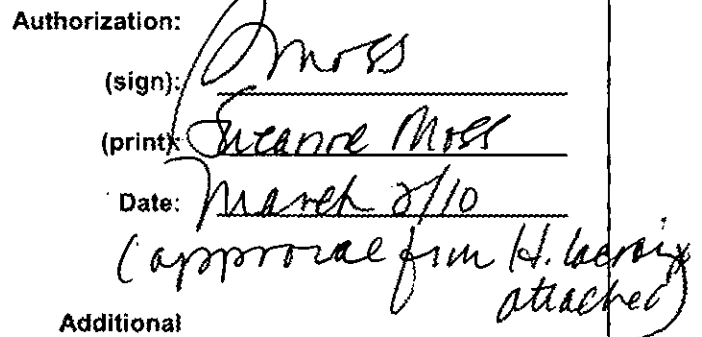 Authorization:
(sign): Moss
(print): Suzanne Moss
Date: March 2/10
(approval from H. Lacroix
attached)
Additional